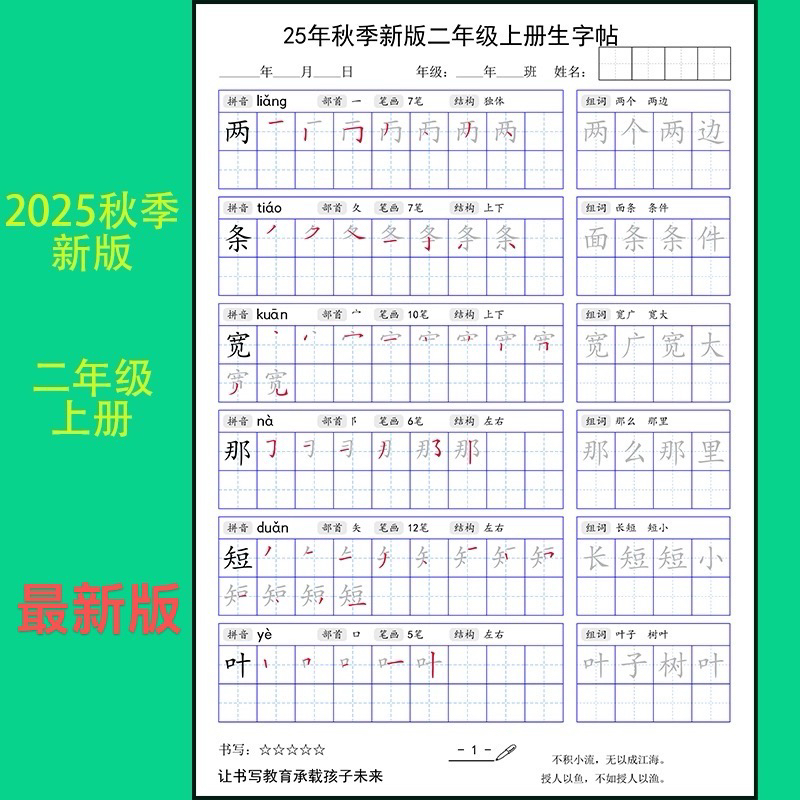 2025秋季
新版
二年级
上册
最新版
25年秋季新版二年级上册生字帖
年 月 日 年级: 年 班 姓名:
拼音 liǎng 部首 一 笔画 7笔 结构 独体 组词 两个 两边
两 两个两边
拼音 tiáo 部首 夂 笔画 7笔 结构 上下 组词 面条 条件
条 面条条件
拼音 kuān 部首 宀 笔画 10笔 结构 上下 组词 宽广 宽大
宽 宽广宽大
拼音 nà 部首 阝 笔画 6笔 结构 左右 组词 那么 那里
那 那么那里
拼音 duǎn 部首 矢 笔画 12笔 结构 左右 组词 长短 短小
短 长短短小
拼音 yè 部首 口 笔画 5笔 结构 左右 组词 叶子 树叶
叶 叶子树叶
书写: ☆☆☆☆☆
让书写教育承载孩子未来
- 1 -
不积小流,无以成江海。
授人以鱼,不如授人以渔。